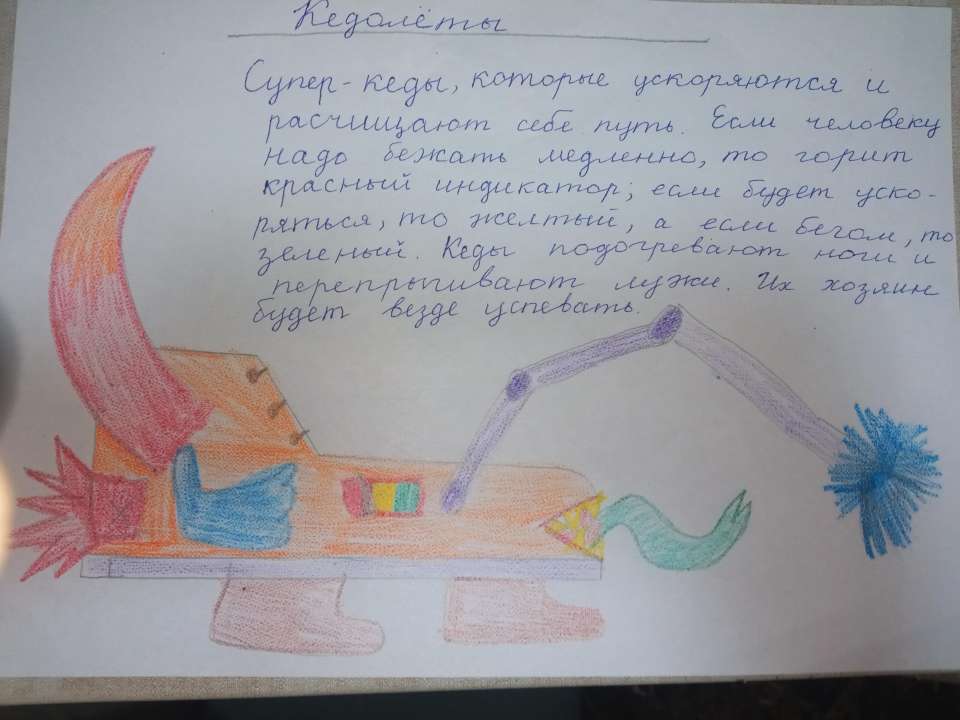 Кедолёты
Супер-кеды, которые ускоряются и
расчищают себе путь. Если человеку
надо бежать медленно, то горит
красный индикатор; если будет уско-
ряться, то желтый, а если бегом, то
зеленый. Кеды подогревают ноги и
перепрыгивают лужи. Их хозяин
будет везде успевать.